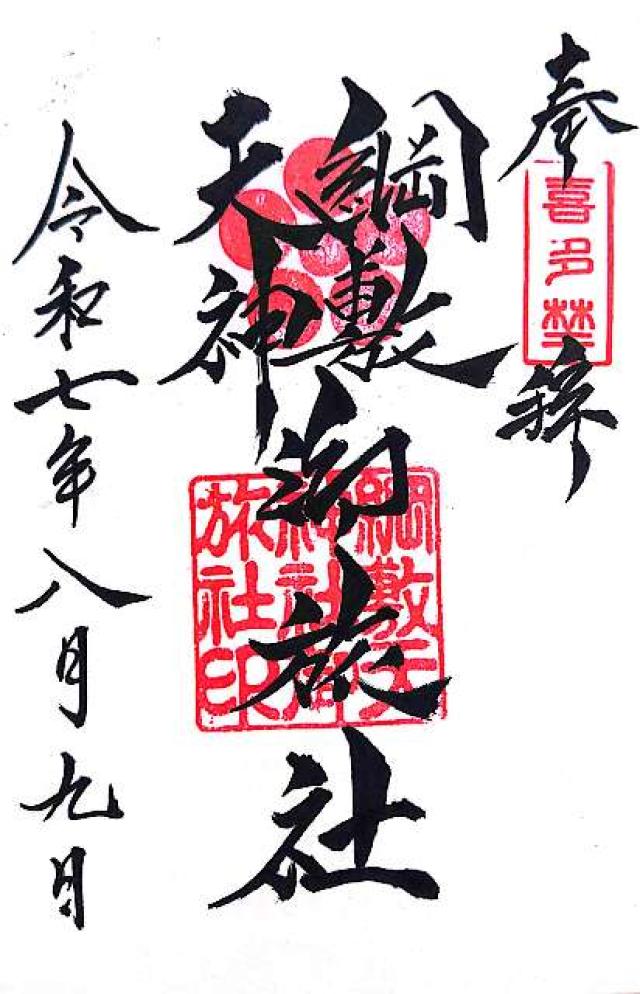 奉拝
喜多埜
綱敷
天神
御旅社
綱敷天
神社御
旅社印
令和七年八月九日